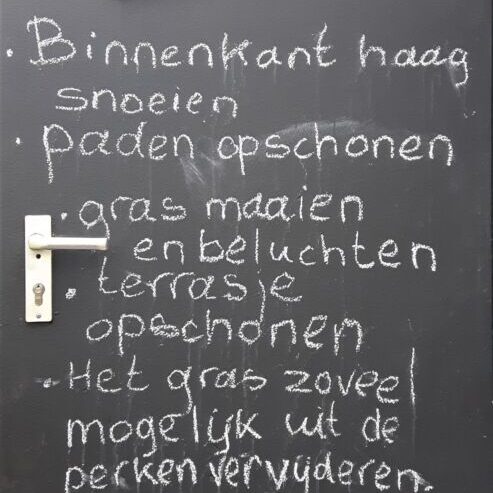 · Binnenkant haag
snoeien
· paden opschonen
· gras maaien
en beluchten
· terrasje
opschonen
- Het gras zoveel
mogelijk uit de
perken verwijderen.